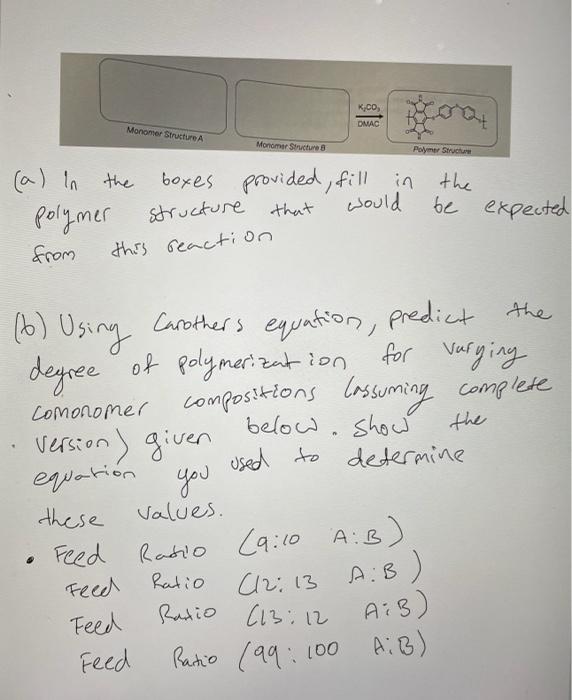 K₂CO₃
DMAC
Monomer Structure A
Monomer Structure B
Polymer Structure
(a) In the boxes provided, fill in the
polymer structure that would be expected
from this reaction
(b) Using Carothers equation, predict the
degree of polymerization for varying
comonomer compositions (assuming complete
version) given below. Show the
equation you used to determine
these values.
• Feed Ratio (9:10 A:B)
Feed Ratio (12:13 A:B)
Feed Ratio (13:12 A:B)
Feed Ratio (99:100 A:B)